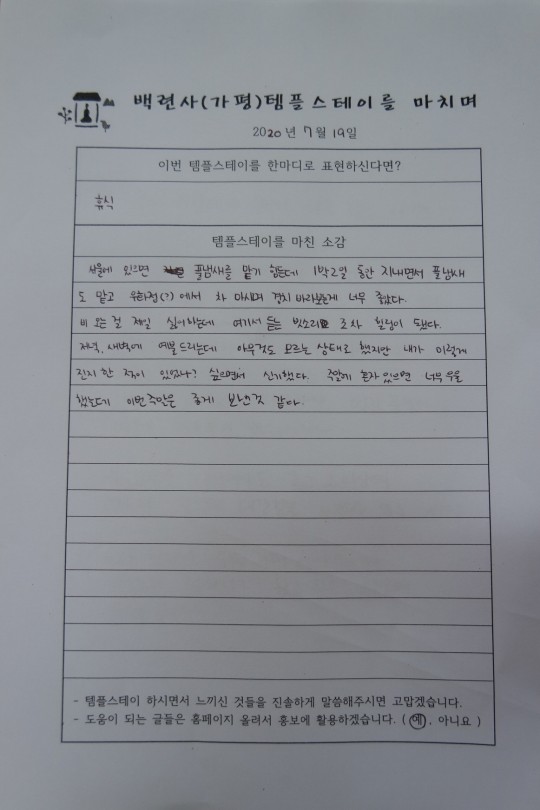 백련사(가평)템플스테이를 마치며
2020년 7월 19일
이번 템플스테이를 한마디로 표현하신다면?
휴식
템플스테이를 마친 소감
서울에 있으면 풀냄새를 맡기 힘든데 1박2일 동안 지내면서 풀냄새
도 맡고 (?)에서 차 마시며 경치 바라보는게 너무 좋았다.
비 오는 걸 제일 싫어하는데 여기서 듣는 빗소리 조차 힐링이 됐다.
저녁, 새벽에 예불 드리는데 아무것도 모르는 상태로 했지만 내가 이렇게
진지한 적이 있었나? 싶으면서 신기했다. 주말에 혼자 있으면 너무 우울
했는데 이번주말은 좋게 보낸것 같다.
- 템플스테이 하시면서 느끼신 것들을 진솔하게 말씀해주시면 고맙겠습니다.
- 도움이 되는 글들은 홈페이지 올려서 홍보에 활용하겠습니다. ( 예, 아니요 )